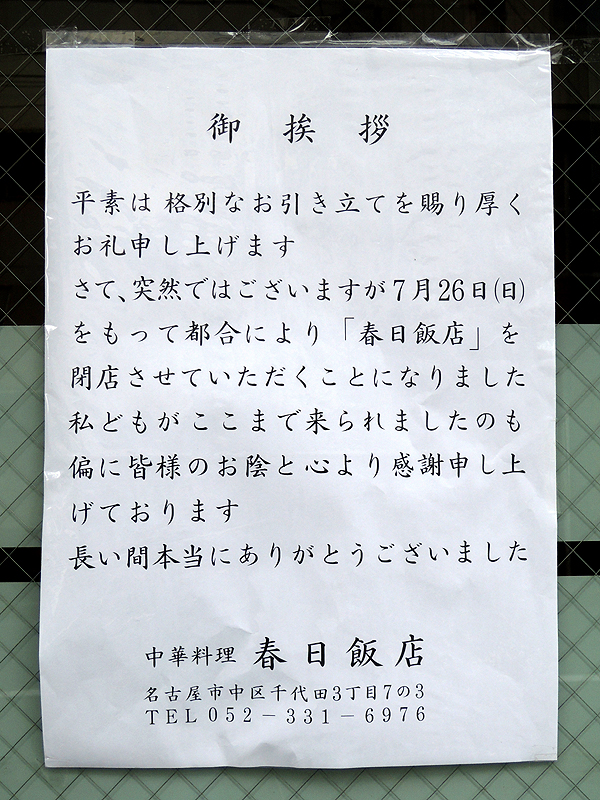 御挨拶
平素は 格別なお引き立てを賜り厚く
お礼申し上げます
さて、突然ではございますが7月26日(日)
をもって都合により「春日飯店」を
閉店させていただくことになりました
私どもがここまで来られましたのも
偏に皆様のお陰と心より感謝申し上
げております
長い間本当にありがとうございました
中華料理 春日飯店
名古屋市中区千代田3丁目7の3
TEL052-331-6976